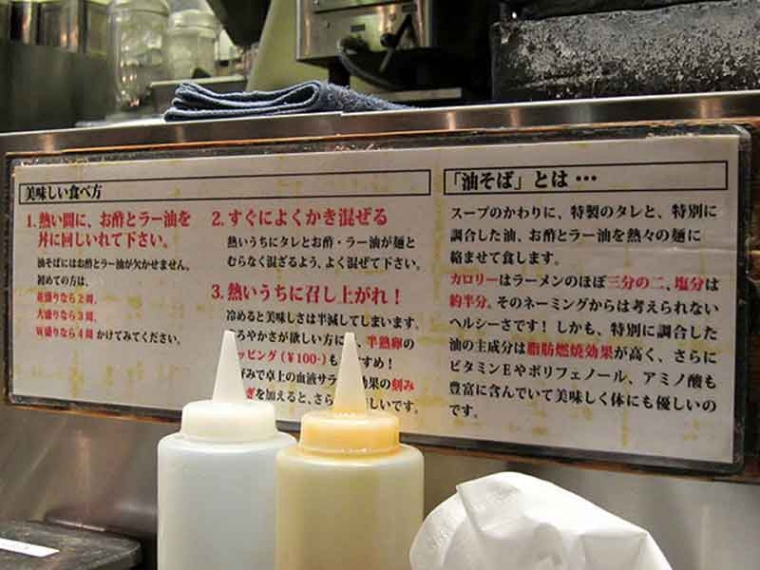 美味しい食べ方
1. 熱い間に、お酢とラー油を
丼に回しいれて下さい。
油そばにはお酢とラー油が欠かせません。
初めての方は、
並盛りなら2周、
大盛りなら3周、
W盛りなら4周 かけてみてください。
2. すぐによくかき混ぜる
熱いうちにタレとお酢・ラー油が麺と
むらなく混ざるよう、よく混ぜて下さい。
3. 熱いうちに召し上がれ！
冷めると美味しさは半減してしまいます。
ろやかさが欲しい方に 半熟卵の
ッピング(¥100-)も すめ！
好みで卓上の血液サラ 効果の刻み
ぎを加えると、さら しいです。
「油そば」とは…
スープのかわりに、特製のタレと、特別に
調合した油、お酢とラー油を熱々の麺に
絡ませて食します。
カロリーはラーメンのほぼ三分の二、塩分は
約半分。そのネーミングからは考えられない
ヘルシーさです！しかも、特別に調合した
油の主成分は脂肪燃焼効果が高く、さらに
ビタミンEやポリフェノール、アミノ酸も
豊富に含んでいて美味しく体にも優しいの
です。